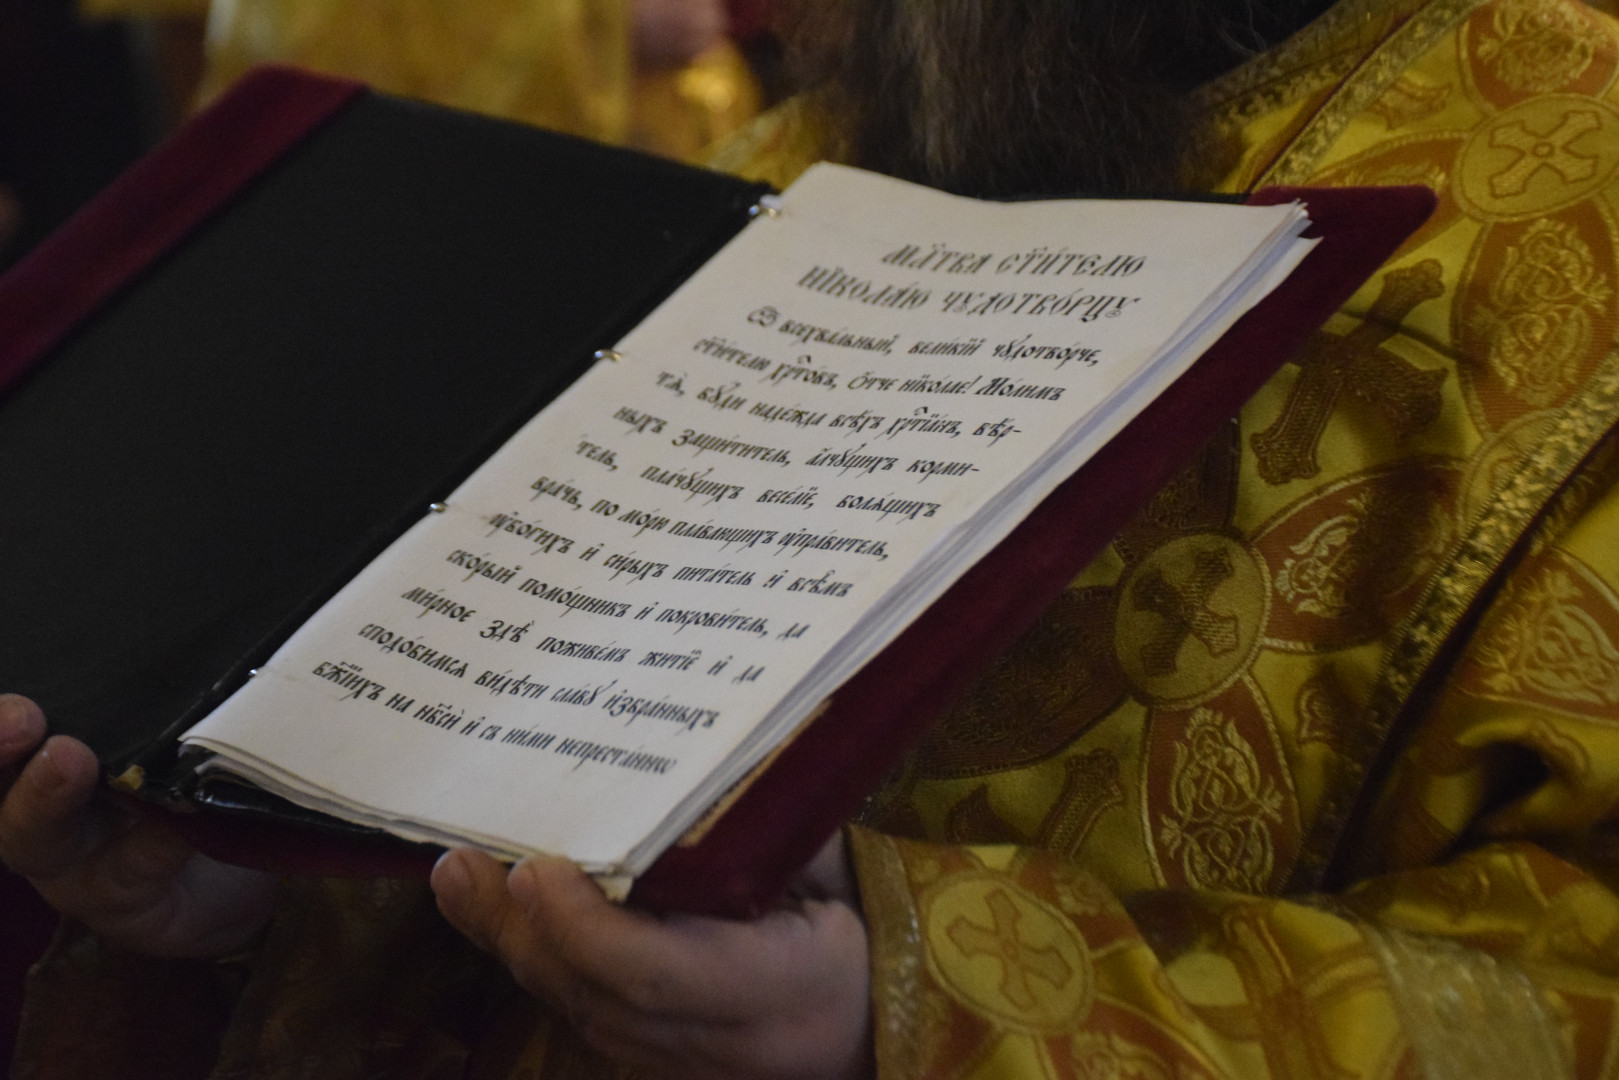 мл҃тва ст҃и́телю
нїкола́ю чꙋдотво́рцꙋ
Ѽ всехва́льный, вели́кїй чꙋдотво́рче,
ст҃и́телю хрⷭ҇то́въ, ѻ҆́тче нїко́лае! Мо́лимъ
тѧ̀, бꙋ́ди наде́жда всѣ́хъ хрⷭ҇тїа́нъ, вѣ́р-
ныхъ защи́титель, а҆́лчꙋщихъ корми́-
тель, пла́чꙋщихъ весе́лїе, болѧ́щихъ
вра́чь, по мо́рю пла́вающихъ ᲂу҆пра́витель,
ᲂу҆бо́гихъ и҆ си́рыхъ пита́тель и҆ всѣ̑мъ
ско́рый помо́щникъ и҆ покрови́тель, да
ми́рное здѣ̀ поживе́мъ житїе̑ и҆ да
сподо́бимсѧ ви́дѣти сла́вꙋ и҆збра́нныхъ
бж҃їихъ на нб҃сѝ и҆ съ ни́ми непреста́ннѡ